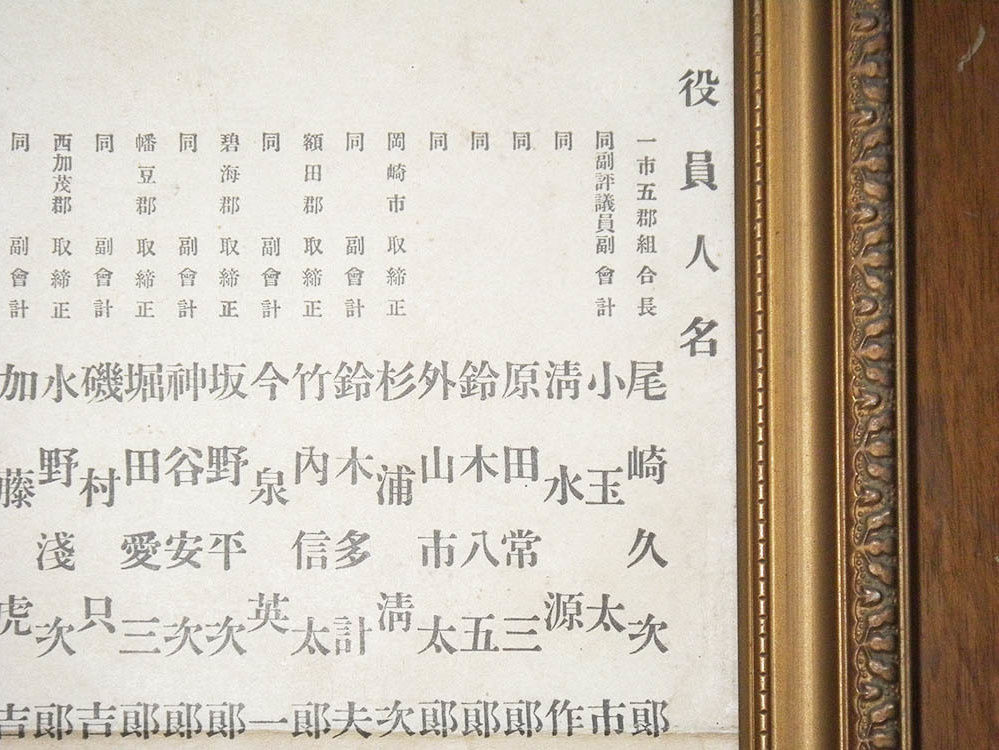 役員人名
一市五郡組合長 尾崎久次郎
同副評議員副會計 小玉太市
同 淸水源作
同 原田常三郎
同 鈴木八五郎
同 外山市太郎
岡崎市 取締正 杉浦淸次
同 副會計 鈴木多計夫
額田郡 取締正 竹內信太郎
同 副會計 今泉英一
碧海郡 取締正 坂野平次郎
同 副會計 神谷安次郎
幡豆郡 取締正 堀田愛三郎
同 副會計 磯村只吉
西加茂郡 取締正 水野淺次郎
同 副會計 加藤虎吉